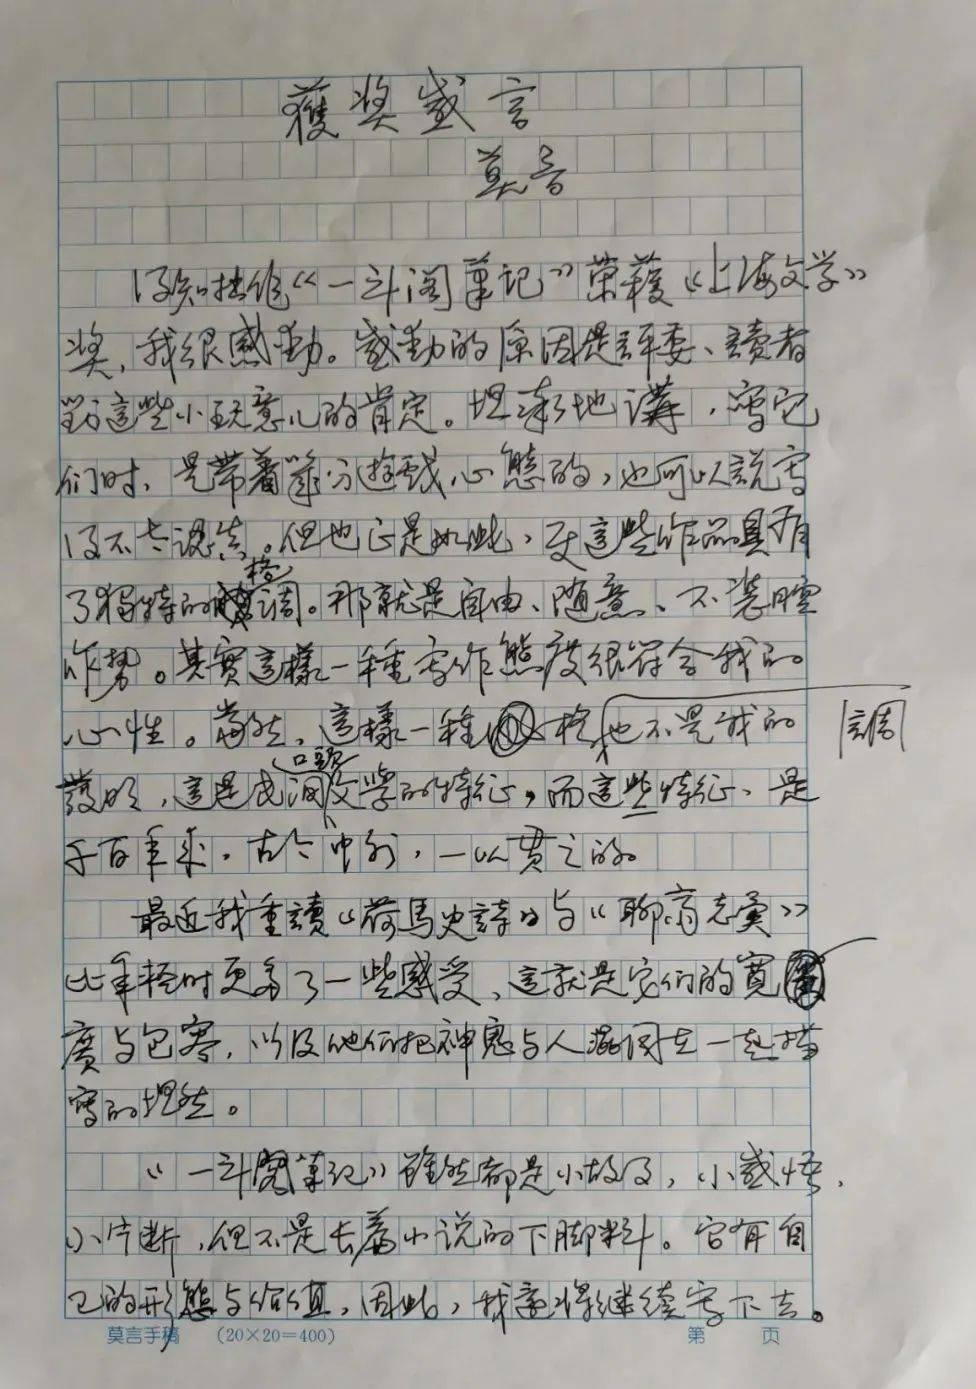 獲奖感言
莫言
得知拙作《一斗阁筆记》荣獲《上海文学》
奖，我很感動。感動的原因是評委、讀者
對這些小玩意儿的肯定。坦率地講，寫它
们时，是带着幾分遊戏心態的，也可以説写
得不太认真。但也正是如此，使这些作品具有
了獨特的格調。那就是自由、随意、不装腔
作势。其實這樣一種写作態度很符合我的
心性。當然，這樣一種格調也不是我的
發明，這是民间口頭文學的特征，而這些特征，是
千百年来，古今中外，一以貫之的。
最近我重讀《荷馬史詩》与《聊齋志異》
比年轻时更多了一些感受，這就是它们的寬
廣与包容，以及他们把神鬼与人混同在一起描
寫的坦然。
《一斗閣筆记》雖然都是小故事，小感悟，
小片断，但不是长篇小说的下脚料。它有自
己的形態与价值，因此，我會繼续写下去。
莫言手稿 （20×20=400） 第 页